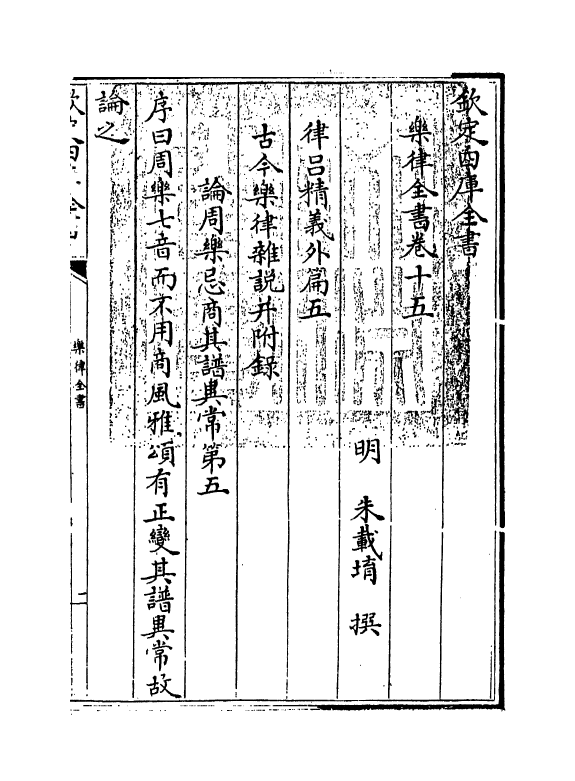 欽定四庫全書
樂律全書卷十五
明 朱載堉 撰
律吕精義外篇五
古今樂律雜說并附錄
論周樂忌商其譜異常第五
序曰周樂七音而不用商風雅頌有正變其譜異常故
論之
樂律全書